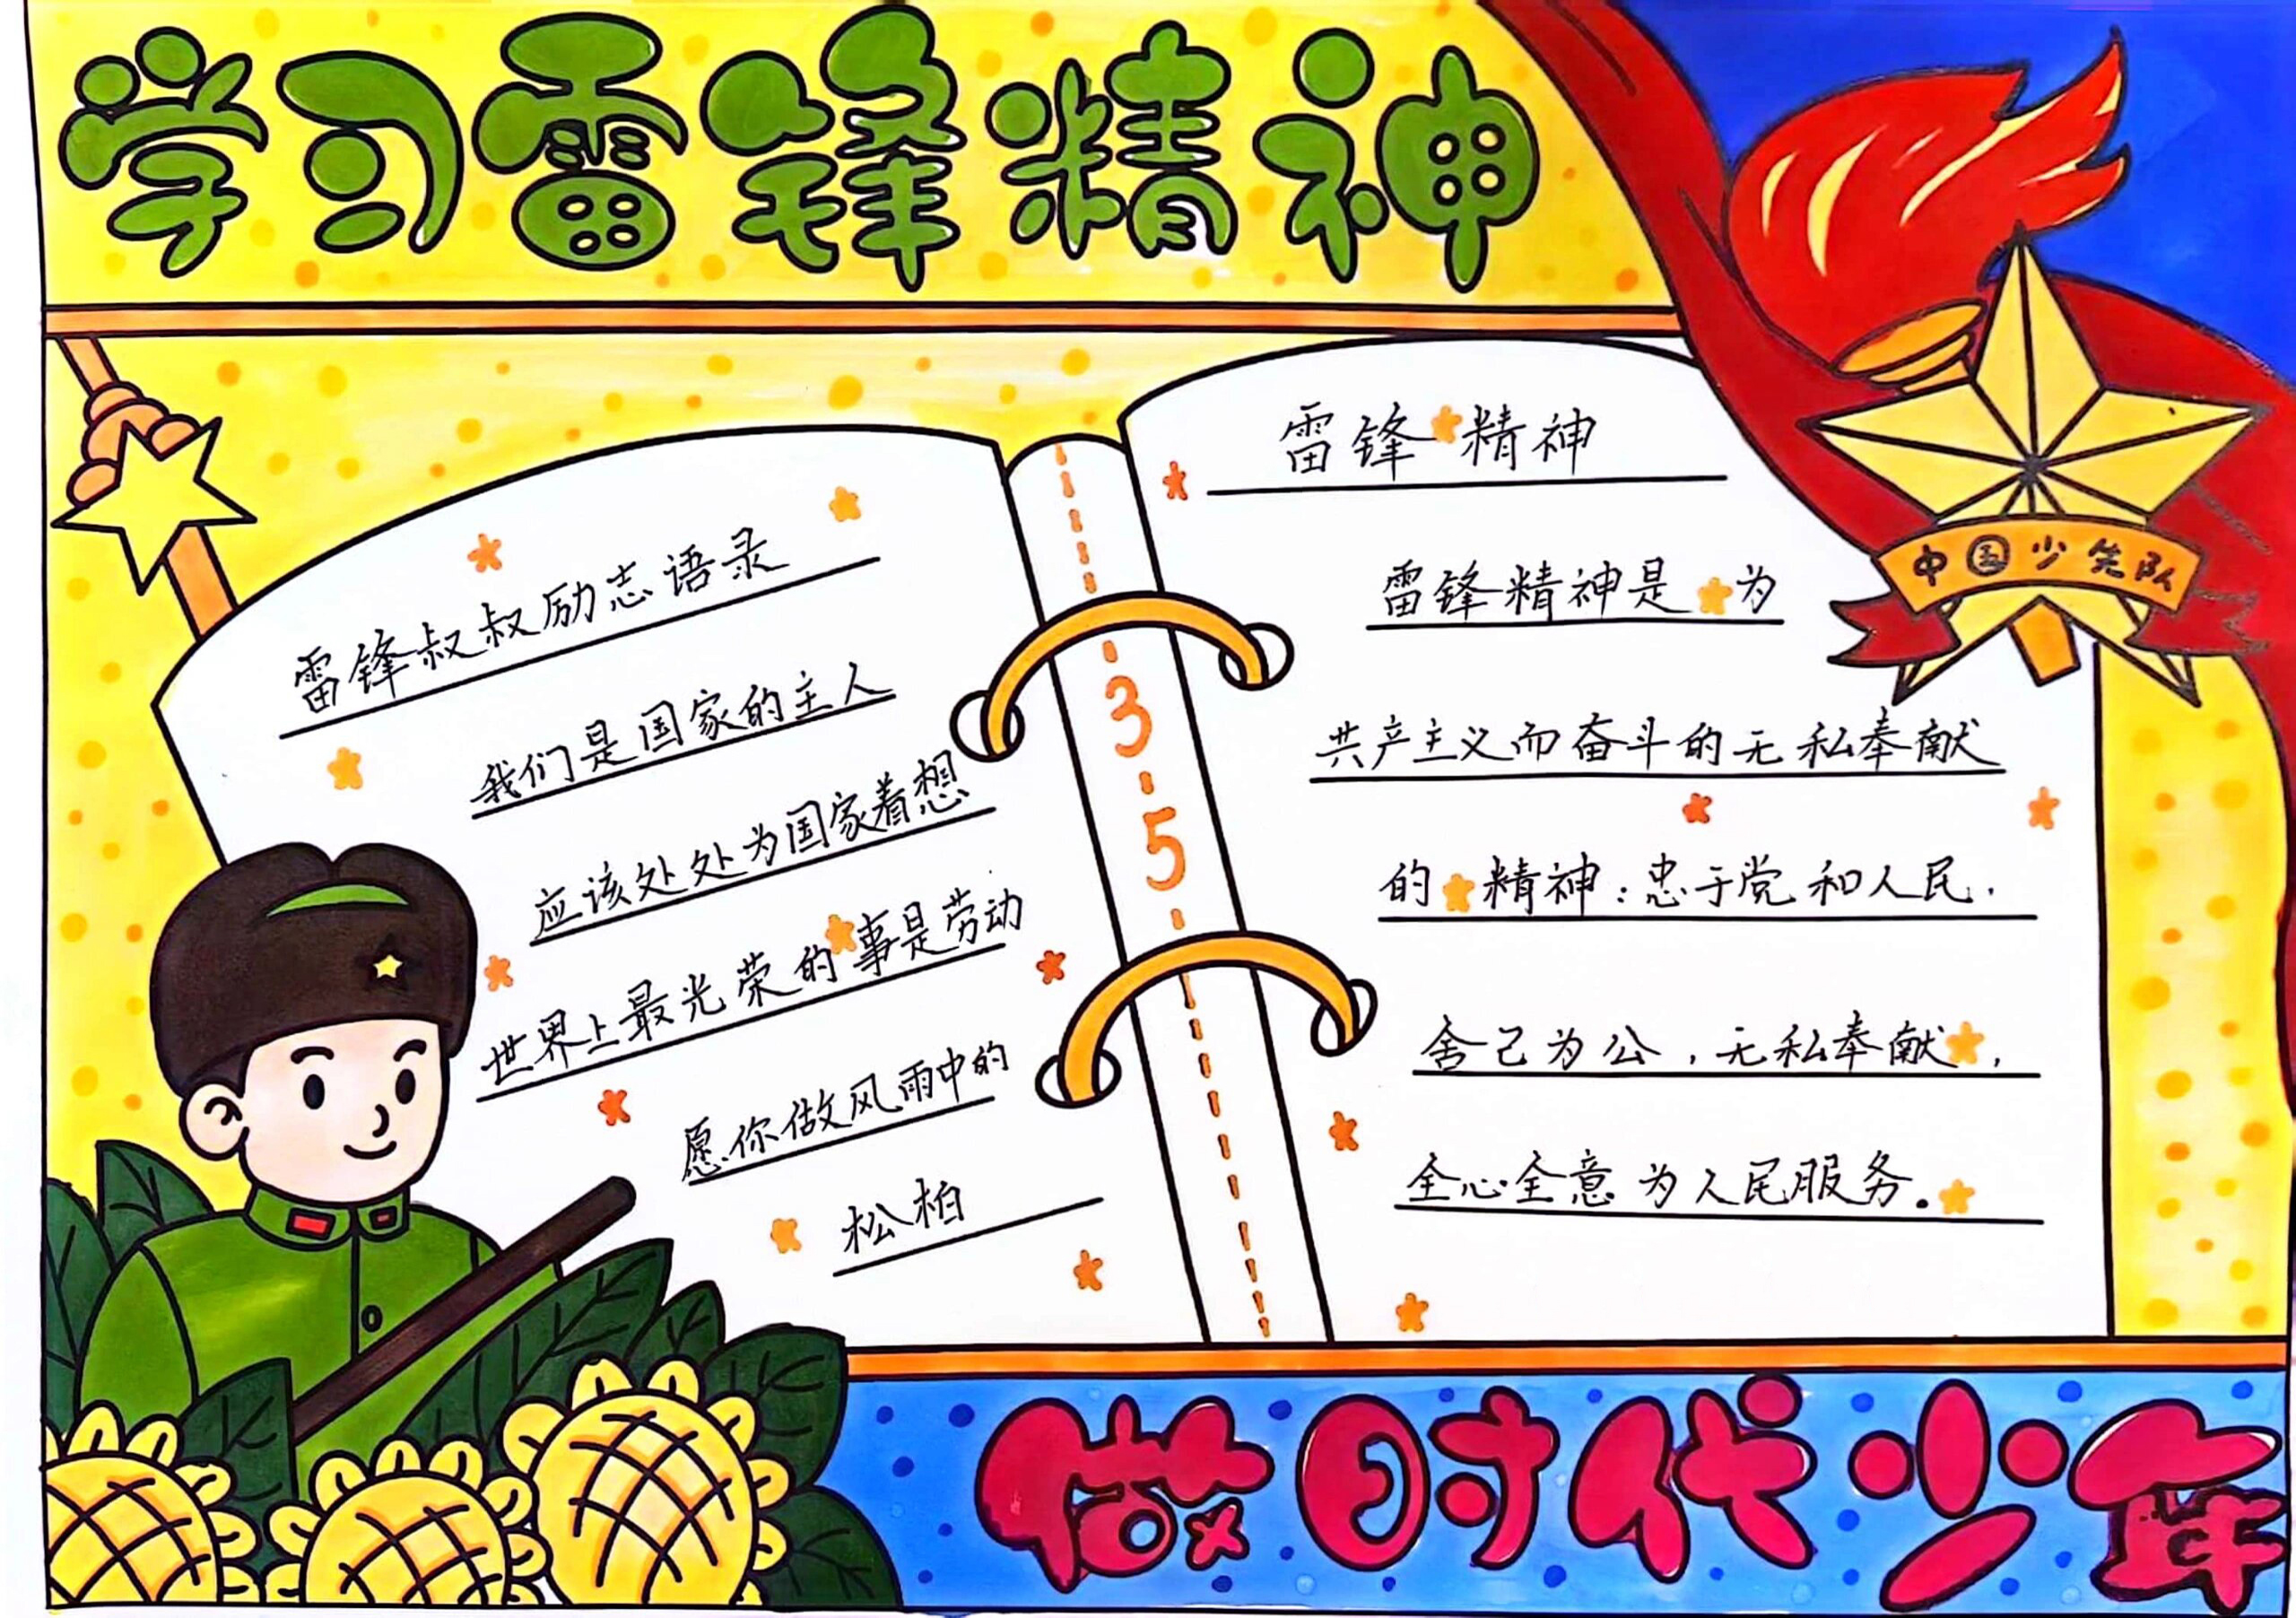 学习雷锋精神
雷锋叔叔励志语录
我们是国家的主人
应该处处为国家着想
世界上最光荣的事是劳动
愿你做风雨中的
松柏
3-5
雷锋精神
雷锋精神是为
共产主义而奋斗的无私奉献
的精神：忠于党和人民．
舍己为公，无私奉献，
全心全意为人民服务。
中国少先队
做时代少年